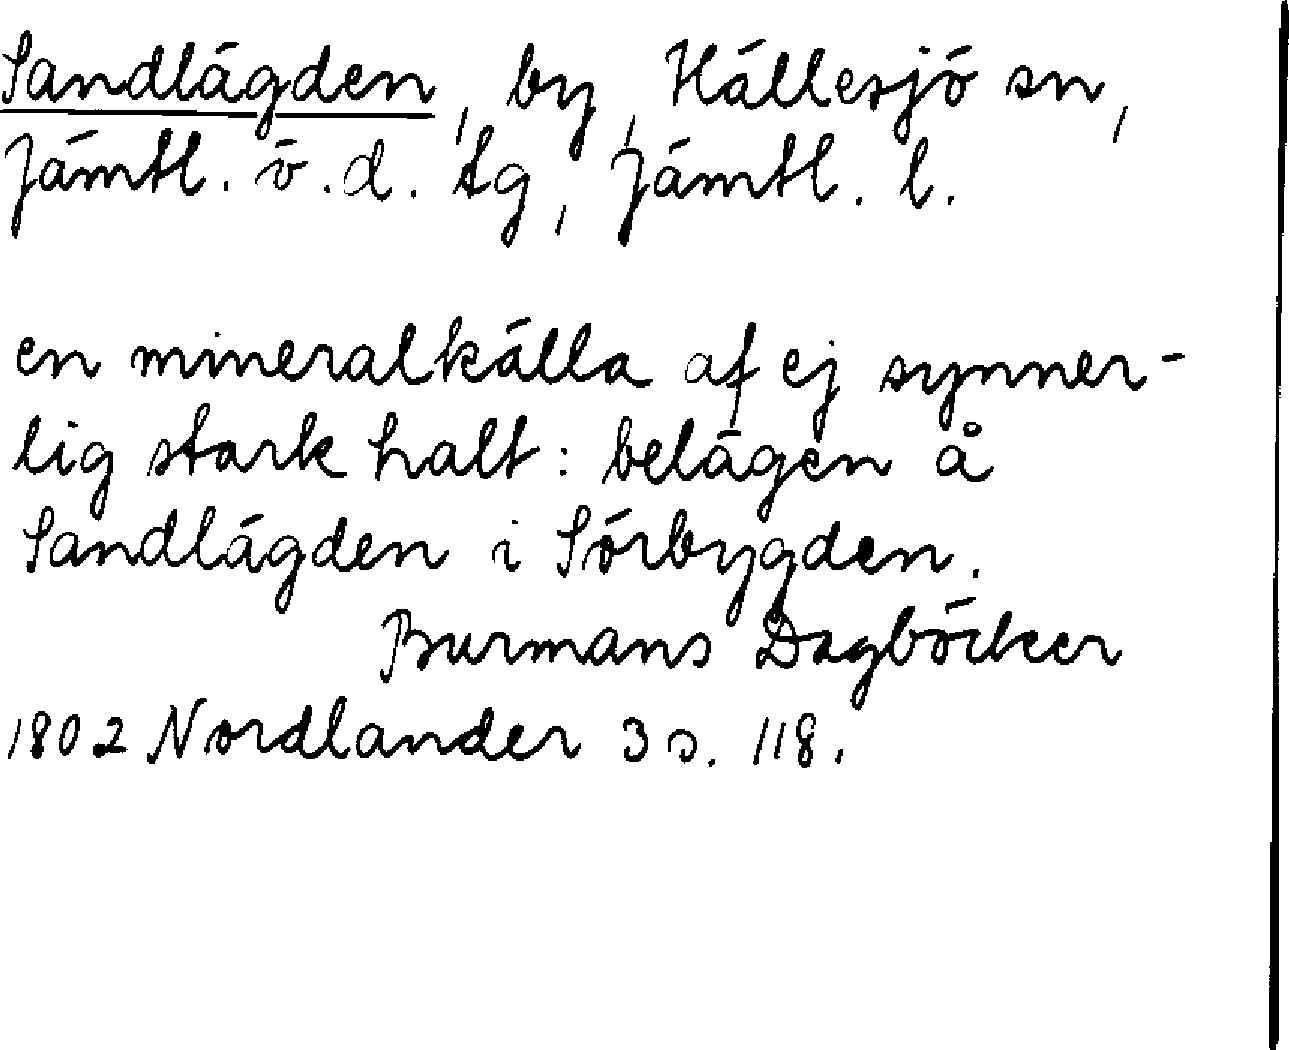 Sandlägden, by, Hällesjö sn,
Jämtl. ö.d. tg, Jämtl. l.
en mineralkälla af ej synner-
lig stark halt: belägen å
Sandlägden i Sörbygden.
Burmans Dagböcker
1802 Nordlander 3 s. 118.